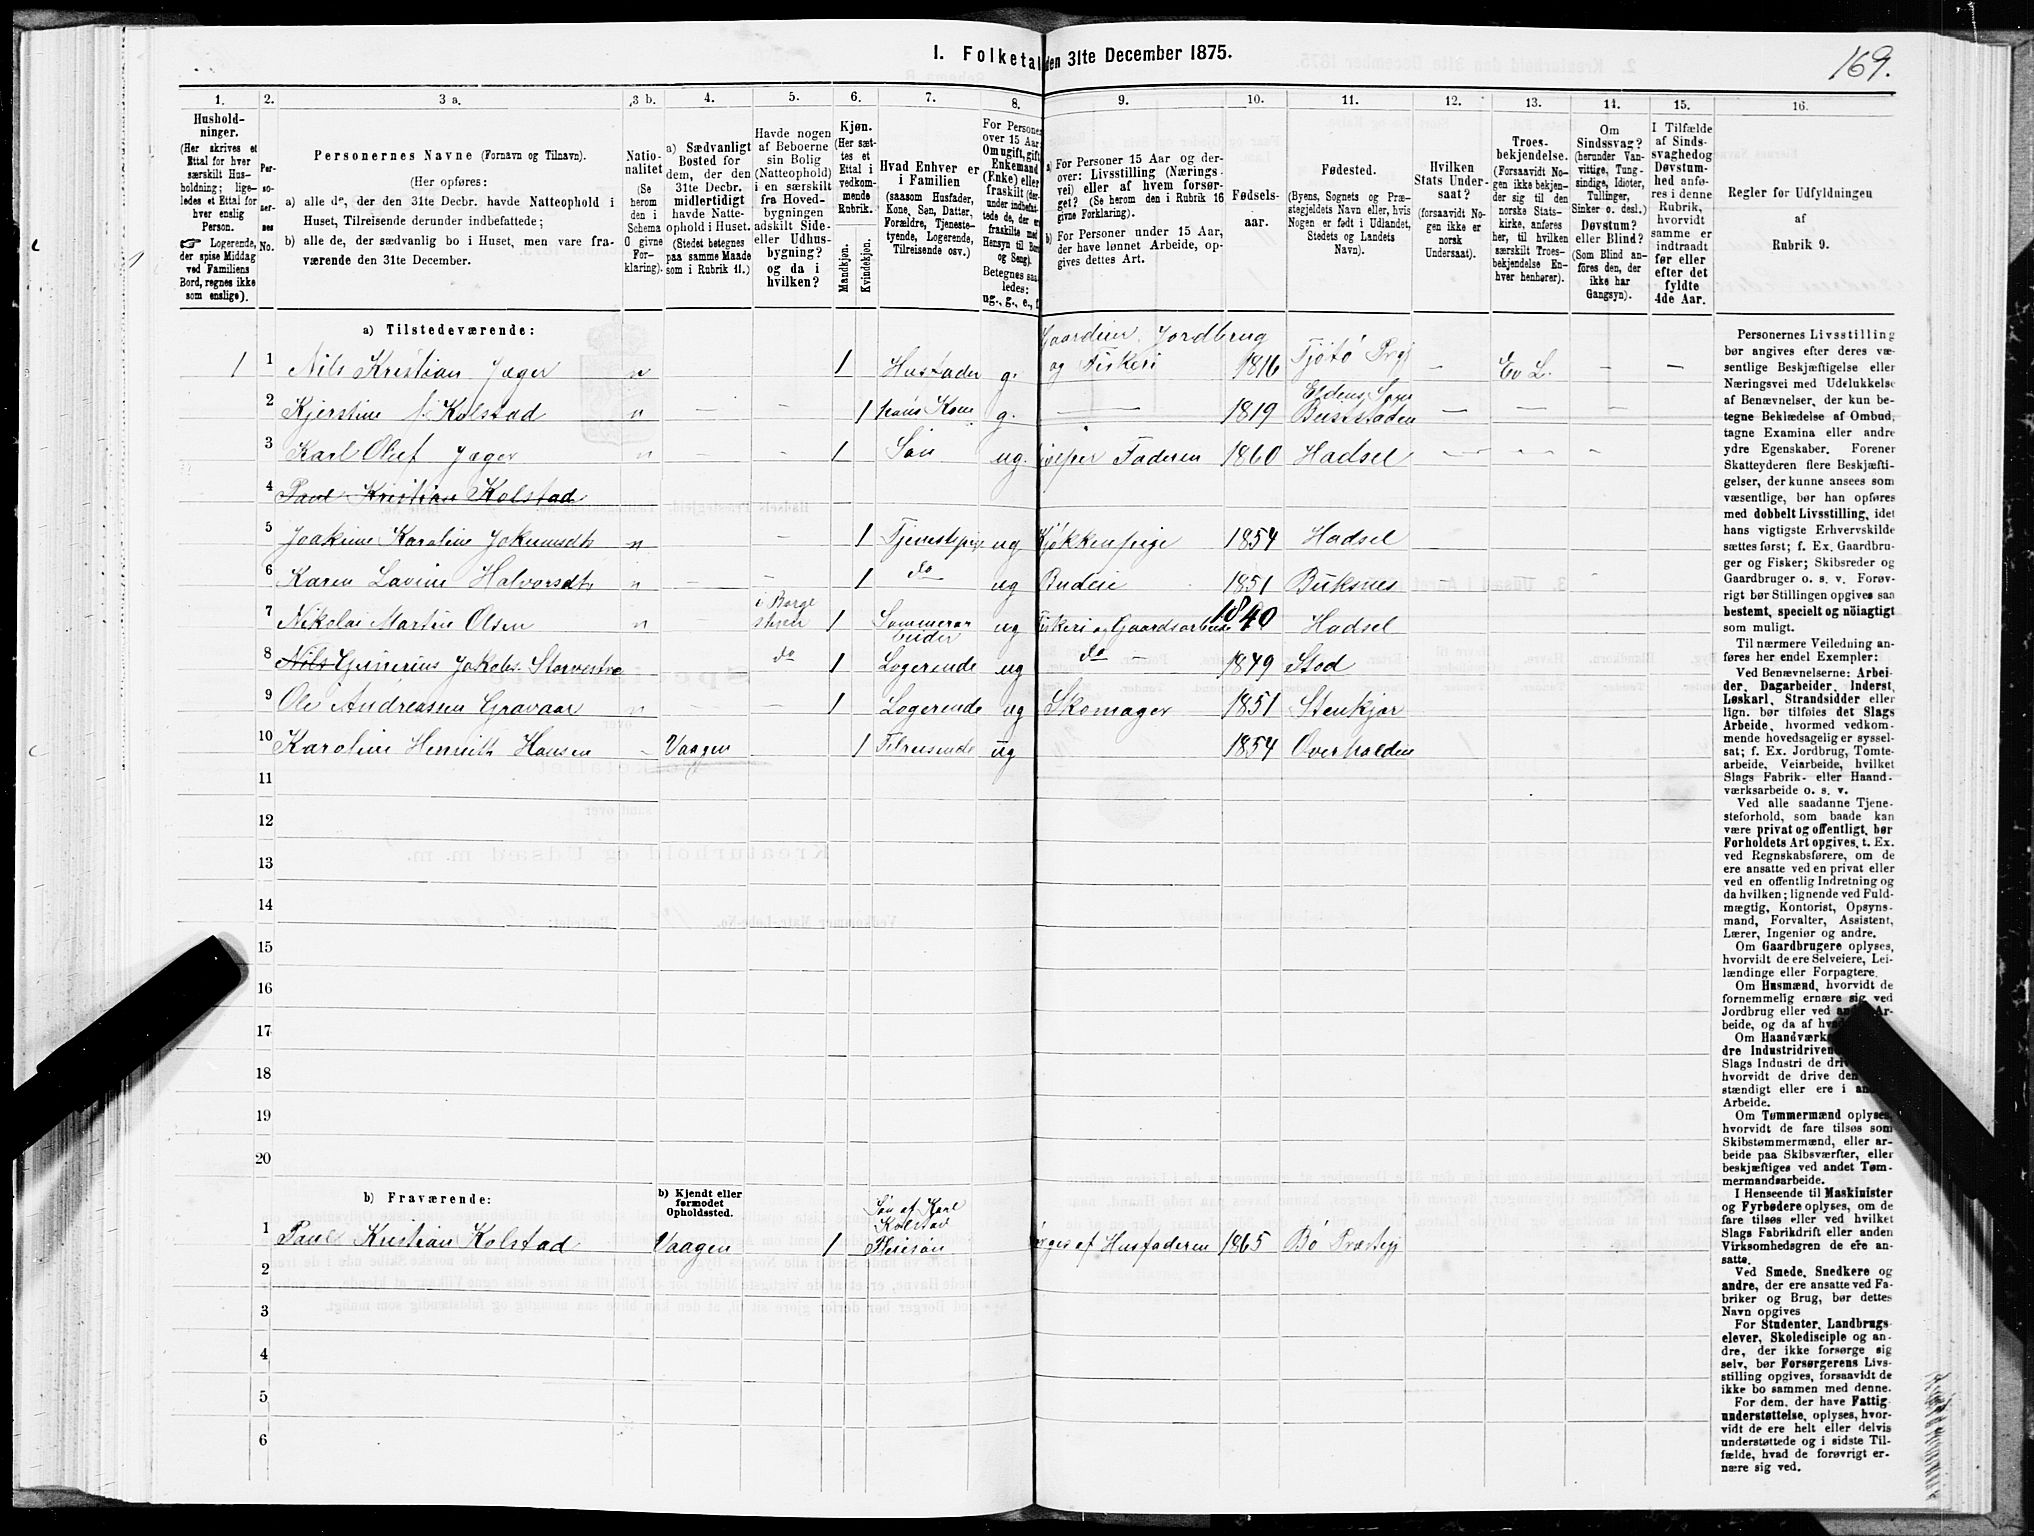 169.
I. Folketal den 31te December 1875.
1. 2. 3 a. 3 b. 4. 5. 6. 7. 8. 9. 10. 11. 12. 13. 14. 15. 16.
Hushold-
ninger.
(Her skrives et
Ettal for hver
særskilt Hus-
holdning; lige-
ledes et Ettal for
hver enslig
Person.
☞ Logerende,
der spise Middag
ved Familiens
Bord, regnes ikke
som enslige).
Per-
so-
ner-
nes
No.
Personernes Navne (Fornavn og Tilnavn).
(Her opføres:
a) alle de, der den 31te Decbr. havde Natteophold i
Huset, Tilreisende derunder indbefattede;
b) alle de, der sædvanlig bo i Huset, men vare fra-
værende den 31te December.
Natio-
nalitet
(Se
herom
den i
Schema
O givne
For-
klaring).
a) Sædvanligt
Bosted for
dem, der den
31te Decbr.
midlertidigt
havde Natte-
ophold i Huset.
(Stedet betegnes
paa samme Maade
som i Rubrik 11.)
Havde nogen
af Beboerne
sin Bolig
(Natteophold)
i en særskilt
fra Hoved-
bygningen
adskilt Side-
eller Udhus-
bygning?
og da i
hvilken?
Kjøn.
(Her sæt-
tes et
Ettal i
vedkom-
mende
Rubrik.
Mandkjøn.
Kvindekjøn.
Hvad Enhver er
i Familien
(saasom Husfader,
Kone, Søn, Datter,
Forældre, Tjeneste-
tyende, Logerende,
Tilreisende osv.)
For Personer
over 15 Aar:
Om ugift, gift,
Enkemand
(Enke) eller
fraskilt (der-
under indbefat-
tede de, der er
fraskilte med
Hensyn til Bord
og Seng).
Betegnes saa-
ledes:
ug., g., e., f.
a) For Personer 15 Aar og der-
over: Livsstilling (Nærings-
vei) eller af hvem forsør-
get? (Se herom den i Rubrik 16
givne Forklaring).
b) For Personer under 15 Aar,
der have lønnet Arbeide, op-
gives dettes Art.
Fødsels-
aar.
Fødested.
(Byens, Sognets og Præ-
stegjeldets Navn eller, hvis
Nogen er født i Udlandet,
Stedets og Landets
Navn).
Hvilken
Stats Under-
saat?
(forsaavidt No-
gen ikke er
norsk
Undersaat).
Troes-
bekjendelse.
(Forsaavidt No-
gen ikke bekjen-
der sig til den
norske Stats-
kirke, anføres
her, til hvilken
særskilt Troes-
bekjendelse En-
hver henhører).
Om
Sindssvag?
(herunder Van-
vittige, Tung-
sindige, Idioter,
Tullinger,
Sinker o. desl.)
Døvstum?
eller Blind?
(Som Blind an-
føres den, der
ikke har
Gangsyn).
I Tilfælde
af Sinds-
svaghed og
Døvstum-
hed anfø-
res i denne
Rubrik,
hvorvidt
samme er
indtraadt
før eller
efter det
fyldte
4de Aar.
Regler for Udfyldningen
af
Rubrik 9.
a) Tilstedeværende:
Gaardeier Jordbrug
1 1 Nils Kristian Jæger n 1 Husfader g. og Fiskeri 1816 Tjøtø Prgj — Ev L. — —
2 Kjerstine Kolstad n — — 1 hans Kone g. — 1819 — — — —
3 Karl Oluf Jæger n — — 1 Søn ug. Hjelper Faderen 1860 Hadsel
4 Paul Kristian Kolstad
5 Joakime Karoline n — 1 ug Kjøkkenpige 1854 Hadsel
6 Karen Lavine Halvorsdtr n — — 1 do ug Budeie 1851 Buksnes
7 Nikolai Martin Olsen n — i Borge stuen 1 ug Fiskeri og Gaardsarbeide 1840 Hadsel
8 Nils Gunerius Jakobs. do 1 Logerende ug do 1849 Stod
9 Ole Andreassen Gravaar n — — 1 Logerende ug Skomager 1851 Stenkjær
10 Karoline Hansen - Vaagen 1 Tilreisende ug 1854 Overhalden
11
12
13
14
15
16
17
18
19
20
b) Fraværende:
b) Kjendt eller
formodet
Opholdssted.
Søn af Karl
Kolstad
1 Paul Kristian Kolstad Vaagen 1 Pleiesøn sørges af Husfaderen 1865 Bø Præstegj
2
3
4
5
6
Personernes Livsstilling
bør angives efter deres væ-
sentlige Beskjæftigelse eller
Næringsvei med Udelukkelse
af Benævnelser, der kun be-
tegne Beklædelse af Ombud,
tagne Examina eller andre
ydre Egenskaber. Forener
Skatteyderen flere Beskjæfti-
gelser, der kunne ansees som
væsentlige, bør han opføres
med dobbelt Livsstilling, idet
hans vigtigste Erhvervskilde
sættes først; f. Ex. Gaardbru-
ger og Fisker; Skibsreder og
Gaardbruger o. s. v. Forøv-
rigt bør Stillingen opgives saa
bestemt, specielt og nöiagtigt
som muligt.
Til nærmere Veiledning an-
føres her endel Exempler:
Ved Benævnelserne: Arbei-
der, Dagarbeider, Inderst,
Løskarl, Strandsidder eller
lign. bør tilføies det Slags
Arbeide, hvormed vedkom-
mende hovedsagelig er syssel-
sat; f. Ex. Jordbrug, Tomte-
arbeide, Veiarbeide, hvilket
Slags Fabrik- eller Haand-
værksarbeide o. s. v.
Ved alle saadanne Tjene-
steforhold, som baade kan
være privat og offentligt, bør
Forholdets Art opgives, t. Ex.
ved Regnskabsførere, om de
ere ansatte ved en privat eller
ved en offentlig Indretning og
da hvilken; lignende ved Fuld-
mægtig, Kontorist, Opsyns-
mand, Forvalter, Assistent,
Lærer, Ingeniør og andre.
Om Gaardbrugere oplyses,
hvorvidt de ere Selveiere, Lei-
lændinge eller Forpagtere.
Om Husmænd, hvorvidt de
fornemmelig ernære sig ved
Jordbrug eller ved
beide, og da af
Om Haandværk
dre Industridriven
Slags Industri de dri
hvorvidt de drive den
stændigt eller ere i
Arbeide.
Om Tømmermænd oplyses,
hvorvidt de fare tilsøs som
Skibstømmermænd, eller ar-
beide paa Skibsværfter, eller
beskjæftiges ved andet Tøm-
mermandsarbeide.
I Henseende til Maskinister
og Fyrbødere oplyses, om de
fare tilsøs eller ved hvilket
Slags Fabrikdrift eller anden
Virksomhedsgren de ere an-
satte.
Ved Smede, Snedkere og
andre, der ere ansatte ved Fa-
briker og Brug, bør dettes
Navn opgives
For Studenter, Landbrugs-
elever, Skoledisciple og an-
dre, der ikke forsørge sig
selv, bør Forsørgerens Livs-
stilling opgives, forsaavidt de
ikke bo sammen med denne.
For dem, der have Fattig
understøttelse, oplyses, hvor-
vidt de ere helt eller delvis
understøttede og i sidste Til-
fælde, hvad de forøvrigt er-
nære sig ved.